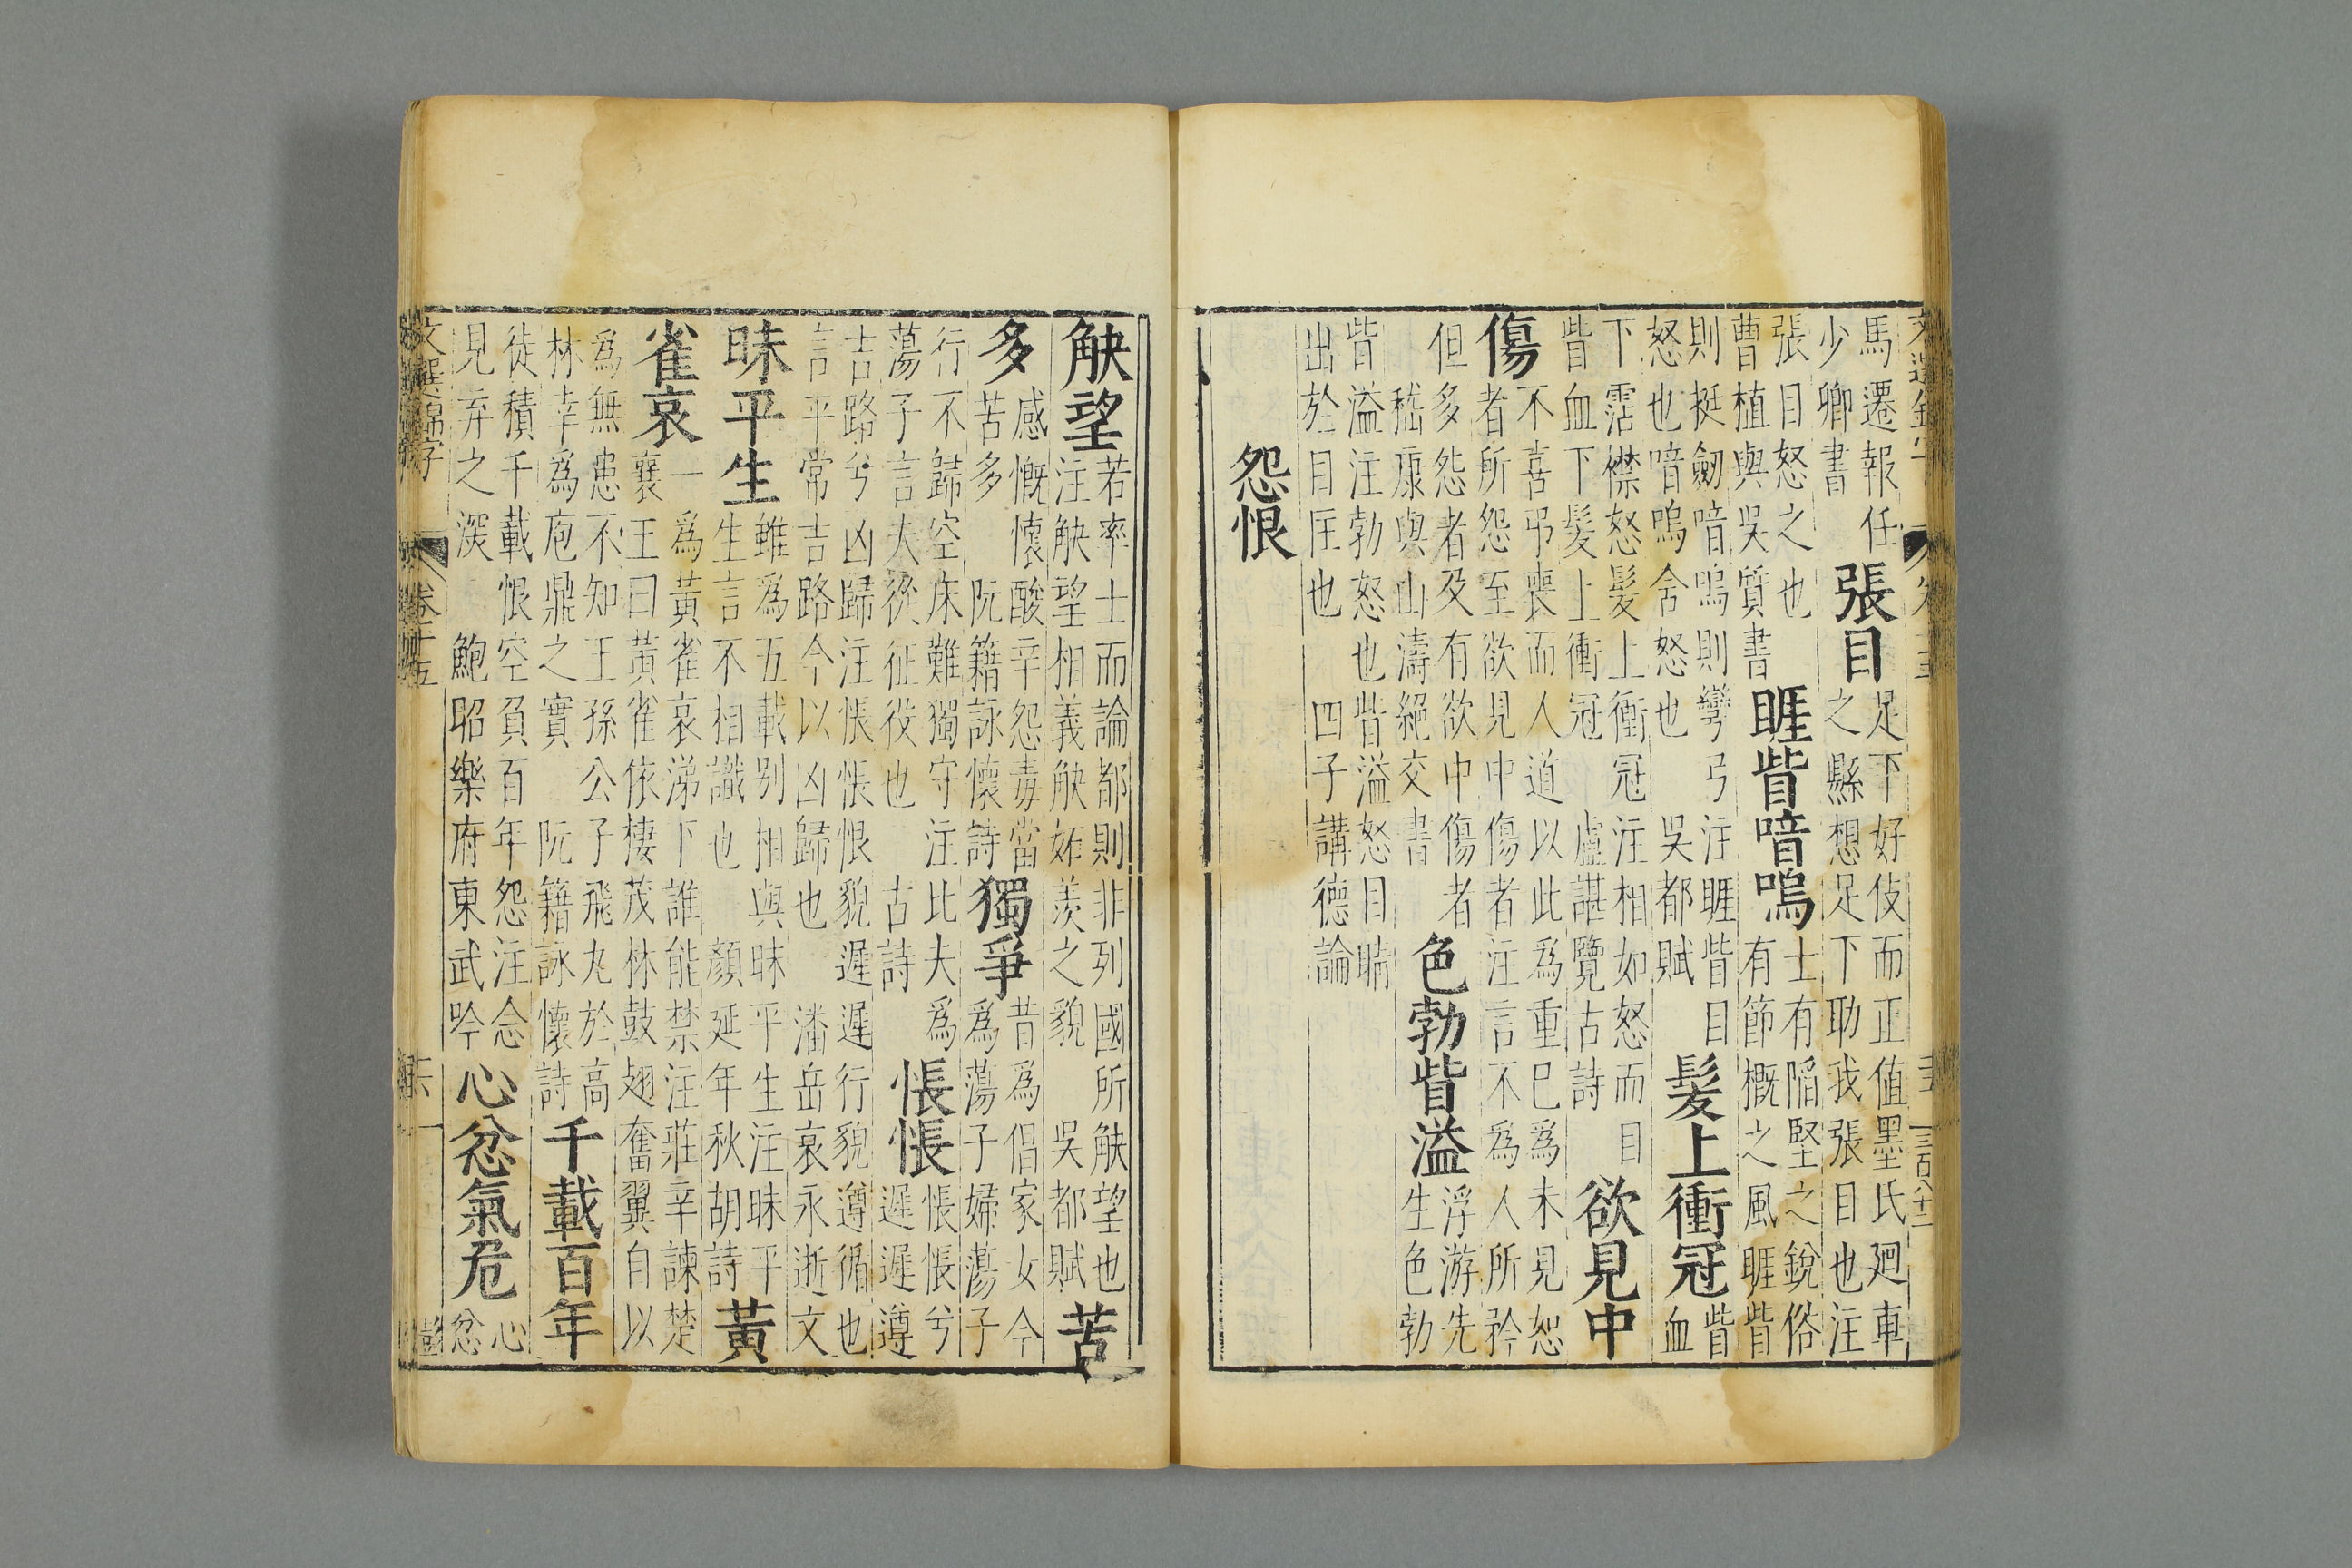 馬遷報任
少卿書
張目
足下好伎而正值墨氏廻車
之縣想足下助我張目也注
張目怒之也
曹植與吳質書
睚眥喑嗚
士有陷堅之銳俗
有節概之風睚眥
則挺劒喑嗚則彎弓注睚眥目
怒也喑嗚舍怒也 吳都賦
髮上衝冠
眥
血
下霑襟怒髮上衝冠注相如怒而目
眥血下髮上衝冠 盧諶覽古詩
欲見中
傷
不喜弔喪而人道以此爲重已爲未見恕
者所怨至欲見中傷者注言不爲人所矜
但多怨者及有欲中傷者
嵇康與山濤絕交書
色勃眥溢
浮游先
生色勃
眥溢注勃怒也眥溢怒目睛
出於目匡也 四子講德論
怨恨
觖望
若率士而論都則非列國所觖望也
注觖望相義觖妬羨之貌 吳都賦
苦
多
感慨懷酸辛怨毒當
苦多 阮籍詠懷詩
獨爭
昔爲倡家女今
爲蕩子婦蕩子
行不歸空床難獨守注比夫爲
蕩子言夫從征役也 古詩
悵悵
悵悵兮
遲遲遵
吉路兮凶歸注悵悵恨貌遲遲行貌遵循也
言平常吉路今以凶歸也 潘岳哀永逝文
昧平生
雖爲五載别相與昧平生注昧平
生言不相識也 顏延年秋胡詩
黃
雀哀
一爲黃雀哀涕下誰能禁注莊辛諫楚
襄王曰黃雀依棲茂林鼓翅奮翼自以
爲無患不知王孫公子飛丸於高
林幸爲庖鼎之實 阮籍詠懷詩
千載百年
徒積千載恨空負百年怨注念
見弃之深 鮑昭樂府東武吟
心忿氣危
心
忿
文選錦字
卷十五